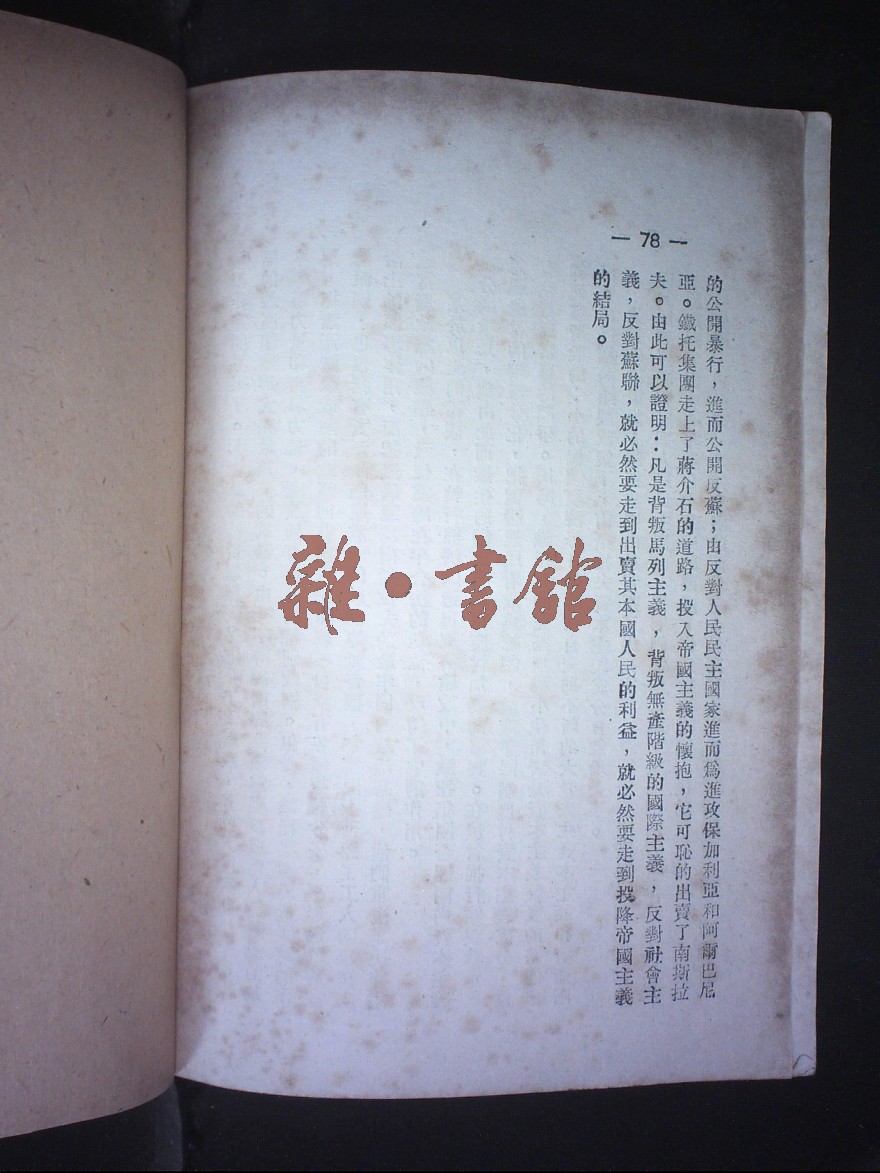 — 78 —
的公開暴行，進而公開反蘇；由反對人民民主國家進而爲進攻保加利亞和阿爾巴尼
亞。鐵托集團走上了蔣介石的道路，投入帝國主義的懷抱，它可恥的出賣了南斯拉
夫。由此可以證明：凡是背叛馬列主義，背叛無產階級的國際主義，反對社會主
義，反對蘇聯，就必然要走到出賣其本國人民的利益，就必然要走到投降帝國主義
的結局。
雜·書館